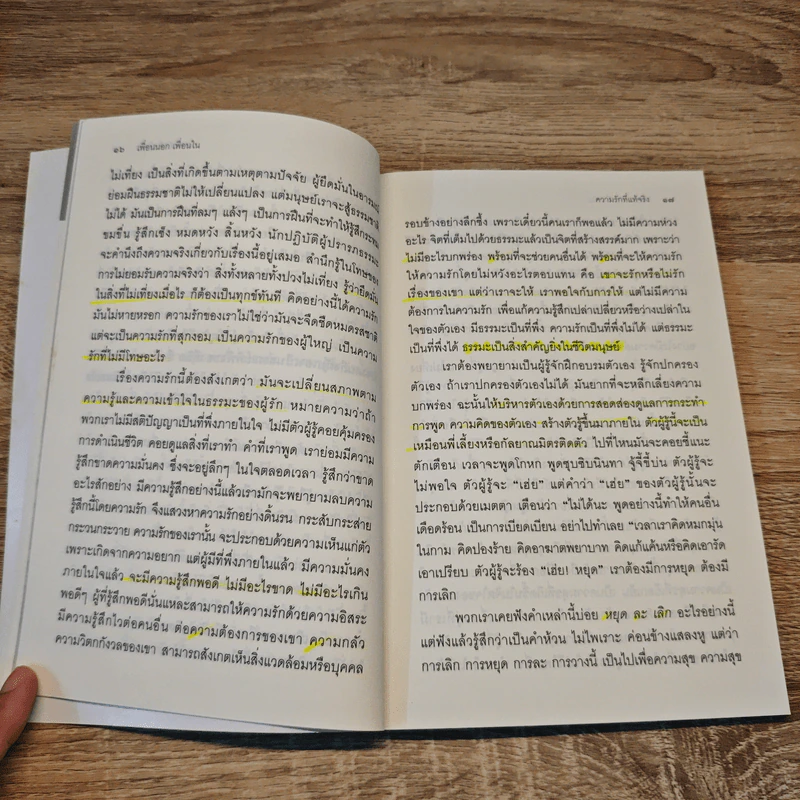 ๑๖ เพื่อนนอก เพื่อนใน
ไม่เที่ยง เป็นสิ่งที่เกิดขึ้นตามเหตุตามปัจจัย ผู้ยึดมั่นในอารมณ์
ย่อมฝืนธรรมชาติไม่ให้เปลี่ยนแปลง แต่มนุษย์เราจะสู้ธรรมชาติ
ไม่ได้ มันเป็นการฝืนที่ลมๆ แล้งๆ เป็นการฝืนที่จะทำให้รู้สึกระทม
ขมขื่น รู้สึกเซ็ง หมดหวัง สิ้นหวัง นักปฏิบัติผู้ปรารภธรรม
จะคำนึงถึงความจริงเกี่ยวกับเรื่องนี้อยู่เสมอ สำนึกรู้ในโทษของ
การไม่ยอมรับความจริงว่า สิ่งทั้งหลายทั้งปวงไม่เที่ยง รู้ว่ายึดมั่น
ในสิ่งที่ไม่เที่ยงเมื่อไร ก็ต้องเป็นทุกข์ทันที คิดอย่างนี้ได้ความรัก
มันไม่หายหรอก ความรักของเราไม่ใช่ว่ามันจะจืดชืดหมดรสชาติ
แต่จะเป็นความรักที่สุกงอม เป็นความรักของผู้ใหญ่ เป็นความ
รักที่ไม่มีโทษอะไร
เรื่องความรักนี้ต้องสังเกตว่า มันจะเปลี่ยนสภาพตาม
ความรู้และความเข้าใจในธรรมะของผู้รัก หมายความว่าถ้า
พวกเราไม่มีสติปัญญาเป็นที่พึ่งภายในใจ ไม่มีตัวผู้รู้คอยคุ้มครอง
การดำเนินชีวิต คอยดูแลสิ่งที่เราทำ คำที่เราพูด เราย่อมมีความ
รู้สึกขาดความมั่นคง ซึ่งจะอยู่ลึกๆ ในใจตลอดเวลา รู้สึกว่าขาด
อะไรสักอย่าง มีความรู้สึกอย่างนี้แล้วเรามักจะพยายามลบความ
รู้สึกนี้โดยความรัก จึงแสวงหาความรักอย่างดิ้นรน กระสับกระส่าย
กระวนกระวาย ความรักของเรานั้น จะประกอบด้วยความเห็นแก่ตัว
เพราะเกิดจากความอยาก แต่ผู้มีที่พึ่งภายในแล้ว มีความมั่นคง
ภายในใจแล้ว จะมีความรู้สึกพอดี ไม่มีอะไรขาด ไม่มีอะไรเกิน
พอดีๆ ผู้ที่รู้สึกพอดีนั่นแหละสามารถให้ความรักด้วยความอิสระ
มีความรู้สึกไวต่อคนอื่น ต่อความต้องการของเขา ความกลัว
ความวิตกกังวลของเขา สามารถสังเกตเห็นสิ่งแวดล้อมหรือบุคคล
ความรักที่แท้จริง ๑๗
รอบข้างอย่างลึกซึ้ง เพราะเดี๋ยวนี้คนเราก็พอแล้ว ไม่มีความห่วง
อะไร จิตที่เต็มไปด้วยธรรมะแล้วเป็นจิตที่สร้างสรรค์มาก เพราะว่า
ไม่มีอะไรบกพร่อง พร้อมที่จะช่วยคนอื่นได้ พร้อมที่จะให้ความรัก
ให้ความรักโดยไม่หวังอะไรตอบแทน คือ เขาจะรักหรือไม่รัก
เรื่องของเขา แต่ว่าเราจะให้ เราพอใจกับการให้ แต่ไม่มีความ
ต้องการในความรัก เพื่อแก้ความรู้สึกเปล่าเปลี่ยวหรือว่างเปล่าใน
ใจของตัวเอง มีธรรมะเป็นที่พึ่ง ความรักเป็นที่พึ่งไม่ได้ แต่ธรรมะ
เป็นที่พึ่งได้ ธรรมะเป็นสิ่งสำคัญยิ่งในชีวิตมนุษย์
เราต้องพยายามเป็นผู้รู้จักฝึกอบรมตัวเอง รู้จักปกครอง
ตัวเอง ถ้าเราปกครองตัวเองไม่ได้ มันยากที่จะหลีกเลี่ยงความ
บกพร่อง ฉะนั้นให้บริหารตัวเองด้วยการสอดส่องดูแลการกระทำ
การพูด ความคิดของตัวเอง สร้างตัวรู้ขึ้นมาภายใน ตัวผู้รู้นี้จะเป็น
เหมือนพี่เลี้ยงหรือกัลยาณมิตรติดตัว ไปที่ไหนมันจะคอยชี้แนะ
ตักเตือน เวลาจะพูดโกหก พูดซุบซิบนินทา จู้จี้ขี้บ่น ตัวผู้รู้จะ
ไม่พอใจ ตัวผู้รู้จะ “เฮ่ย” แต่คำว่า “เฮ่ย” ของตัวผู้รู้นั้นจะ
ประกอบด้วยเมตตา เตือนว่า “ไม่ได้นะ พูดอย่างนี้ทำให้คนอื่น
เดือดร้อน เป็นการเบียดเบียน อย่าไปทำเลย “เวลาเราคิดหมกมุ่น
ในกาม คิดปองร้าย คิดอาฆาตพยาบาท คิดแก้แค้นหรือคิดเอารัด
เอาเปรียบ ตัวผู้รู้จะร้อง “เฮ่ย! หยุด” เราต้องมีการหยุด ต้องมี
การเลิก
พวกเราเคยฟังคำเหล่านี้บ่อย หยุด ละ เลิก อะไรอย่างนี้
แต่ฟังแล้วรู้สึกว่าเป็นคำห้วน ไม่ไพเราะ ค่อนข้างแสลงหู แต่ว่า
การเลิก การหยุด การละ การวางนี้ เป็นไปเพื่อความสุข ความสุข